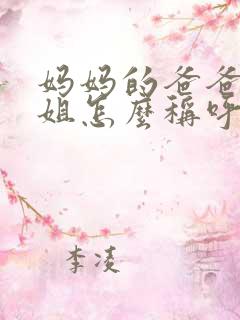 妈妈的爸爸
姐怎麼稱呼
李凌